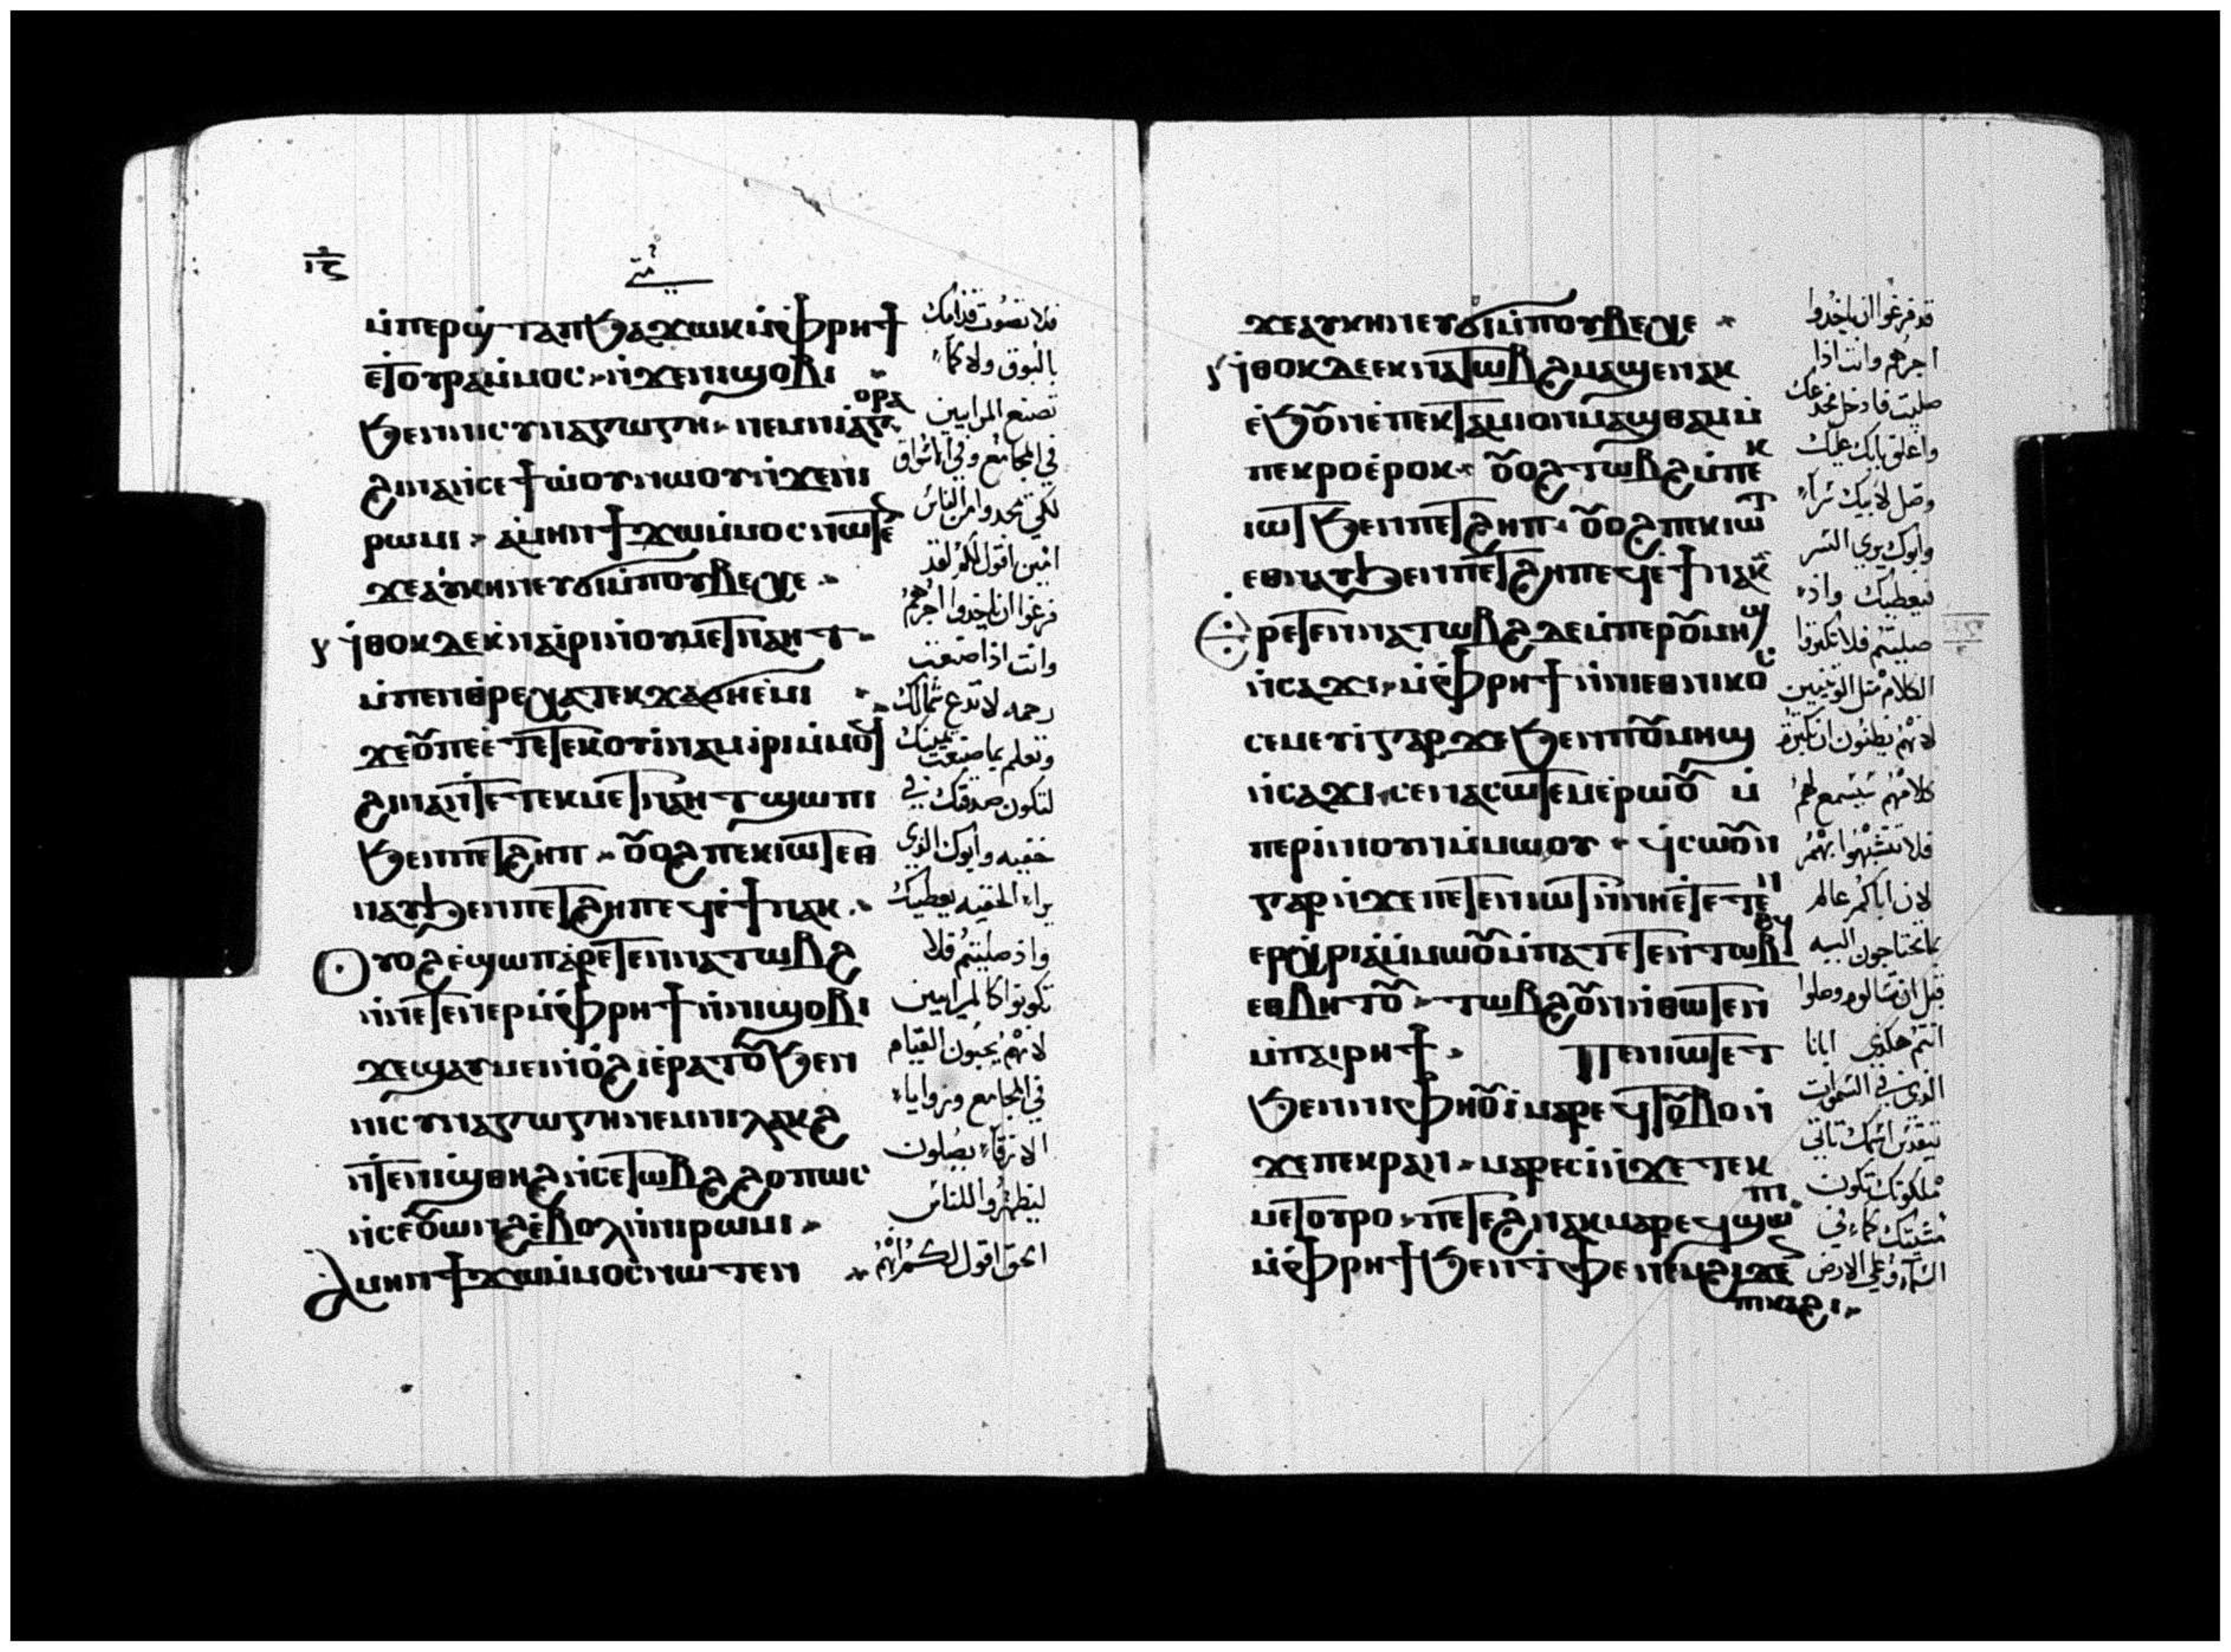 متى
ⲙ̀ⲡⲉⲣⲱ̀ϣ ⲧⲁⲡ ϧⲁϫⲱⲕ ⲙ̀ⲫⲣⲏϯ
ⲉ̀ⲧⲟⲩⲣⲁ ⲙ̀ⲙⲟⲥ ⲛ̀ϫⲉⲛⲓϣⲟⲃⲓ
ϧⲉⲛⲛⲓⲥⲩⲛⲁⲅⲱⲅⲏ ⲛⲉⲙⲛⲓⲁ̀ⲅⲟⲣⲁ
ϩⲓⲛⲁ ⲛ̀ⲥⲉϯⲱ̀ⲟⲩ ⲛⲱⲟⲩ ⲛ̀ϫⲉⲛⲓ
ⲣⲱⲙⲓ ⲁ̀ⲙⲏⲛ ϯϫⲱ ⲙ̀ⲙⲟⲥ ⲛⲱⲧⲉⲛ
ϫⲉⲁⲩⲕⲏⲛ ⲉⲩϭⲓ ⲙ̀ⲡⲟⲩⲃⲉⲭⲉ
ⲛ̀ⲑⲟⲕ ⲇⲉ ⲕ̀ⲛⲁⲓ̀ⲣⲓ ⲛ̀ⲟⲩⲙⲉⲧⲛⲁⲏⲧ
ⲙ̀ⲡⲉⲛⲑⲣⲉ ⲧⲉⲕϫⲁϭⲏ ⲉ̀ⲙⲓ
ϫⲉⲟⲩ ⲡⲉⲉ̀ⲧⲉ ⲧⲉⲕⲟⲩⲓ̀ⲛⲁⲙ ⲓⲣⲓ ⲙ̀ⲙⲟϥ
ϩⲓⲛⲁ ⲛ̀ⲧⲉ ⲧⲉⲕⲙⲉⲧⲛⲁⲏⲧ ϣⲱⲡⲓ
ϧⲉⲛⲡⲉⲧϩⲏⲡ ⲟⲩⲟϩ ⲡⲉⲕⲓⲱⲧ ⲉⲑ
ⲛⲁⲩ ϧⲉⲛⲡⲉⲧϩⲏⲡ ⲉϥⲉ̀ϯ ⲛⲁⲕ
ⲟⲩⲟϩ ⲉ̀ϣⲱⲡ ⲁ̀ⲣⲉⲧⲉⲛⲛⲁⲧⲱⲃϩ
ⲛ̀ⲛⲉⲧⲉⲛⲉⲣ ⲙ̀ⲫⲣⲏϯ ⲛ̀ⲛⲓϣⲟⲃⲓ
ϫⲉϣⲁⲩⲙⲉⲛⲓ ⲟ̀ϩⲓ ⲉ̀ⲣⲁⲧⲟⲩ ϧⲉⲛ
ⲛⲓⲥⲩⲛⲁⲅⲱⲅⲏ ⲛⲉⲙⲛⲓⲗⲁⲕϩ
ⲛ̀ⲧⲉⲛⲓϣ̀ⲑⲏϩ ⲛ̀ⲥⲉⲧⲱⲃϩ ϩⲟⲡⲱⲥ
ⲛ̀ⲥⲉⲟⲩⲱⲛϩ ⲉ̀ⲃⲟⲗ ⲛ̀ⲛⲓⲣⲱⲙⲓ
ⲁ̀ⲙⲏⲛ ϯϫⲱ ⲙ̀ⲙⲟⲥ ⲛⲱⲧⲉⲛ
فلا تصوت قدامك
بالبوق ولا كما
تصنع المرايين
في المجامع وفي الاسواق
لكي يمجدوا من الناس
امين اقول لكم لقد
فرغوا ان ياخدوا اجرهم
وانت اذا صنعت
رحمه لا تدع شمالك
وتعلم بما صنعت يمينك
لتكون صدقتك في
خفيه وابوك الذي
يراء الخفيه يعطيك
واذ صليتم فلا
تكونوا كالمرايين
لانهم يحبون القيام
في المجامع وزوايا
الازقاء يصلون
ليظهروا للناس
الحق اقول لكم انهم
ϫⲉⲁⲩⲕⲏⲛ ⲉⲩϭⲓ ⲙ̀ⲡⲟⲩⲃⲉⲭⲉ
ⲛ̀ⲑⲟⲕ ⲇⲉ ⲉⲕⲛⲁⲧⲱⲃϩ ⲙⲁϣⲉⲛⲁⲕ
ⲉ̀ϧⲟⲩⲛ ⲉ̀ⲡⲉⲕⲧⲁⲙⲓⲟⲛ ⲙⲁϣⲑⲁⲙ ⲙ̀
ⲡⲉⲕⲣⲟ ⲉ̀ⲣⲟⲕ ⲟⲩⲟϩ ⲧⲱⲃϩ ⲙ̀ⲡⲉⲕ
ⲓⲱⲧ ϧⲉⲛⲡⲉⲧϩⲏⲡ ⲟⲩⲟϩ ⲡⲉⲕⲓⲱⲧ
ⲉⲑⲛⲁⲩ ϧⲉⲛⲡⲉⲧϩⲏⲡ ⲉϥⲉ̀ϯ ⲛⲁⲕ
ⲉⲣⲉⲧⲉⲛⲛⲁⲧⲱⲃϩ ⲇⲉ ⲙ̀ⲡⲉⲣ ⲟⲩⲙⲏϣ
ⲛ̀ⲥⲁϫⲓ ⲙ̀ⲫⲣⲏϯ ⲛ̀ⲛⲓⲉⲑⲛⲓⲕⲟⲥ
ⲥⲉⲙⲉⲩⲓ̀ ⲅⲁⲣ ϫⲉ ϧⲉⲛⲡⲟⲩⲙⲏϣ
ⲛ̀ⲥⲁϫⲓ ⲥⲉⲛⲁⲥⲱⲧⲉⲙ ⲉ̀ⲣⲱⲟⲩ ⲙ̀
ⲡⲉⲣⲓ̀ⲛⲓ ⲟⲩⲛ ⲙ̀ⲙⲱⲟⲩ ϥ̀ⲥⲱⲟⲩⲛ
ⲅⲁⲣ ⲛ̀ϫⲉ ⲡⲉⲧⲉⲛⲓⲱⲧ ⲛ̀ⲛⲏⲉ̀ⲧⲉⲧⲉⲛ
ⲉⲣⲭ̀ⲣⲓⲁ ⲙ̀ⲙⲱⲟⲩ ⲙ̀ⲡⲁⲧⲉⲧⲉⲛⲧⲱⲃϩ
ⲉⲑⲃⲏⲧⲟⲩ ⲧⲱⲃϩ ⲟⲩⲛ ⲛ̀ⲑⲱⲧⲉⲛ
ⲙ̀ⲡⲁⲓⲣⲏϯ ⲡⲉⲛⲓⲱⲧ ⲉⲧ
ϧⲉⲛⲛⲓⲫⲏⲟⲩⲓ̀ ⲙⲁⲣⲉϥⲧⲟⲩⲃⲟ ⲛ̀
ϫⲉⲡⲉⲕⲣⲁⲛ ⲙⲁⲣⲉⲥⲓ̀ ⲛ̀ϫⲉ ⲧⲉⲕ
ⲙⲉⲧⲟⲩⲣⲟ ⲡⲉⲧⲉϩⲛⲁⲕ ⲙⲁⲣⲉϥϣⲱⲡⲓ
ⲙ̀ⲫⲣⲏϯ ϧⲉⲛⲧ̀ⲫⲉ ⲛⲉⲙ ϩⲓϫⲉⲛ
ⲡⲓⲕⲁϩⲓ
قد فرغوا ان ياخدوا
اجرهم وانت اذا
صليت فادخل مخدعك
واغلق بابك عليك
وصل لابيك سراً
وابوك يري السر
فيعطيك واذا
صليتم فلا تكثروا
الكلام مثل الوثنيين
لانهم يظنون ان بكثرة
كلامهم يسمع لهم
فلا تتشبهوا بهم
لان اباكم عالم
بما تحتاجون اليه
قبل ان تسالوه وصلوا
انتم هكذي ابانا
الذي في السموات
يتقدس اسمك تاتي
ملكوتك تكون
مشيتك كما في
السماء وعلي الارض